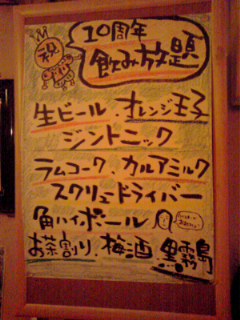 祝
10周年
飲み放題
生ビール.オレンジ王子
ジントニック
ラムコーク.カルアミルク
スクリュードライバー
角ハイボール
お茶割り.梅酒.黒霧島